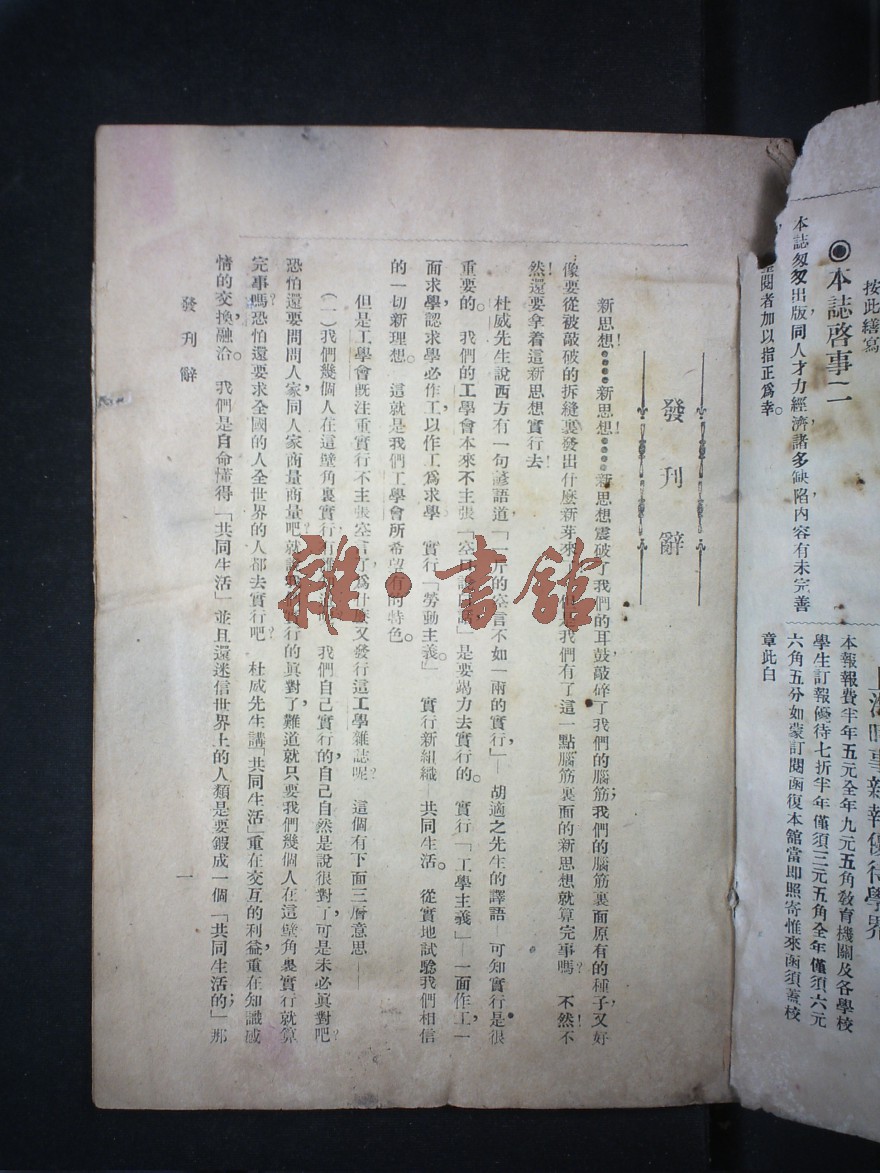 按此繕寫
◉本誌啓事二
本誌匆匆出版同人才力經濟諸多缺陷内容有未完善
閱者加以指正爲幸。
時事新報優待學界
本報報費半年五元全年九元五角敎育機關及各學校
學生訂報優待七折半年僅須三元五角全年僅須六元
六角五分如蒙訂閱函復本舘當即照寄惟來函須蓋校
章此白
發刊辭
新思想!……新思想!……新思想震破了我們的耳鼓敲碎了我們的腦筋;我們的腦筋裏面原有的種子,又好
像要從被敲破的拆縫裏發出什麽新芽來!我們有了這一點腦筋裏面的新思想就算完事嗎?不然!不
然!還要拿着這新思想實行去!
杜威先生說西方有一句諺語道,「一斤的空言不如一兩的實行」—胡適之先生的譯語—可知實行是很
重要的。我們的工學會本來不主張「空」是要竭力去實行的。實行「工學主義」—一面作工,一
面求學,認求學必作工以作工爲求學 實行「勞動主義。」 實行新組織—共同生活。 從實地試驗我們相信
的一切新理想。 這就是我們工學會所希望有的特色。
但是工學會既注重實行不主張空言了,爲什麽又發行這工學雜誌呢? 這個有下面三層意思——
(一)我們幾個人在這壁角裏實行 我們自己實行的,自己自然是說很對了,可是未必眞對吧?
恐怕還要問問人家,同人家商量商量吧?就 行的眞對了,難道就只要我們幾個人在這壁角裏實行就算
完事嗎?恐怕還要求全國的人全世界的人都去實行吧? 杜威先生講「共同生活」重在交互的利益,重在知識感
情的交換融洽。 我們是自命懂得「共同生活」並且還迷信世界上的人類是要鍛成一個「共同生活的」;那
發刊辭
一
雜·書舘